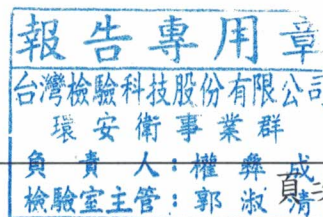 報告專用章
台灣檢驗科技股份有限公司
環安衛事業群
負責人：權彝成
檢驗室主管：郭淑清
頁